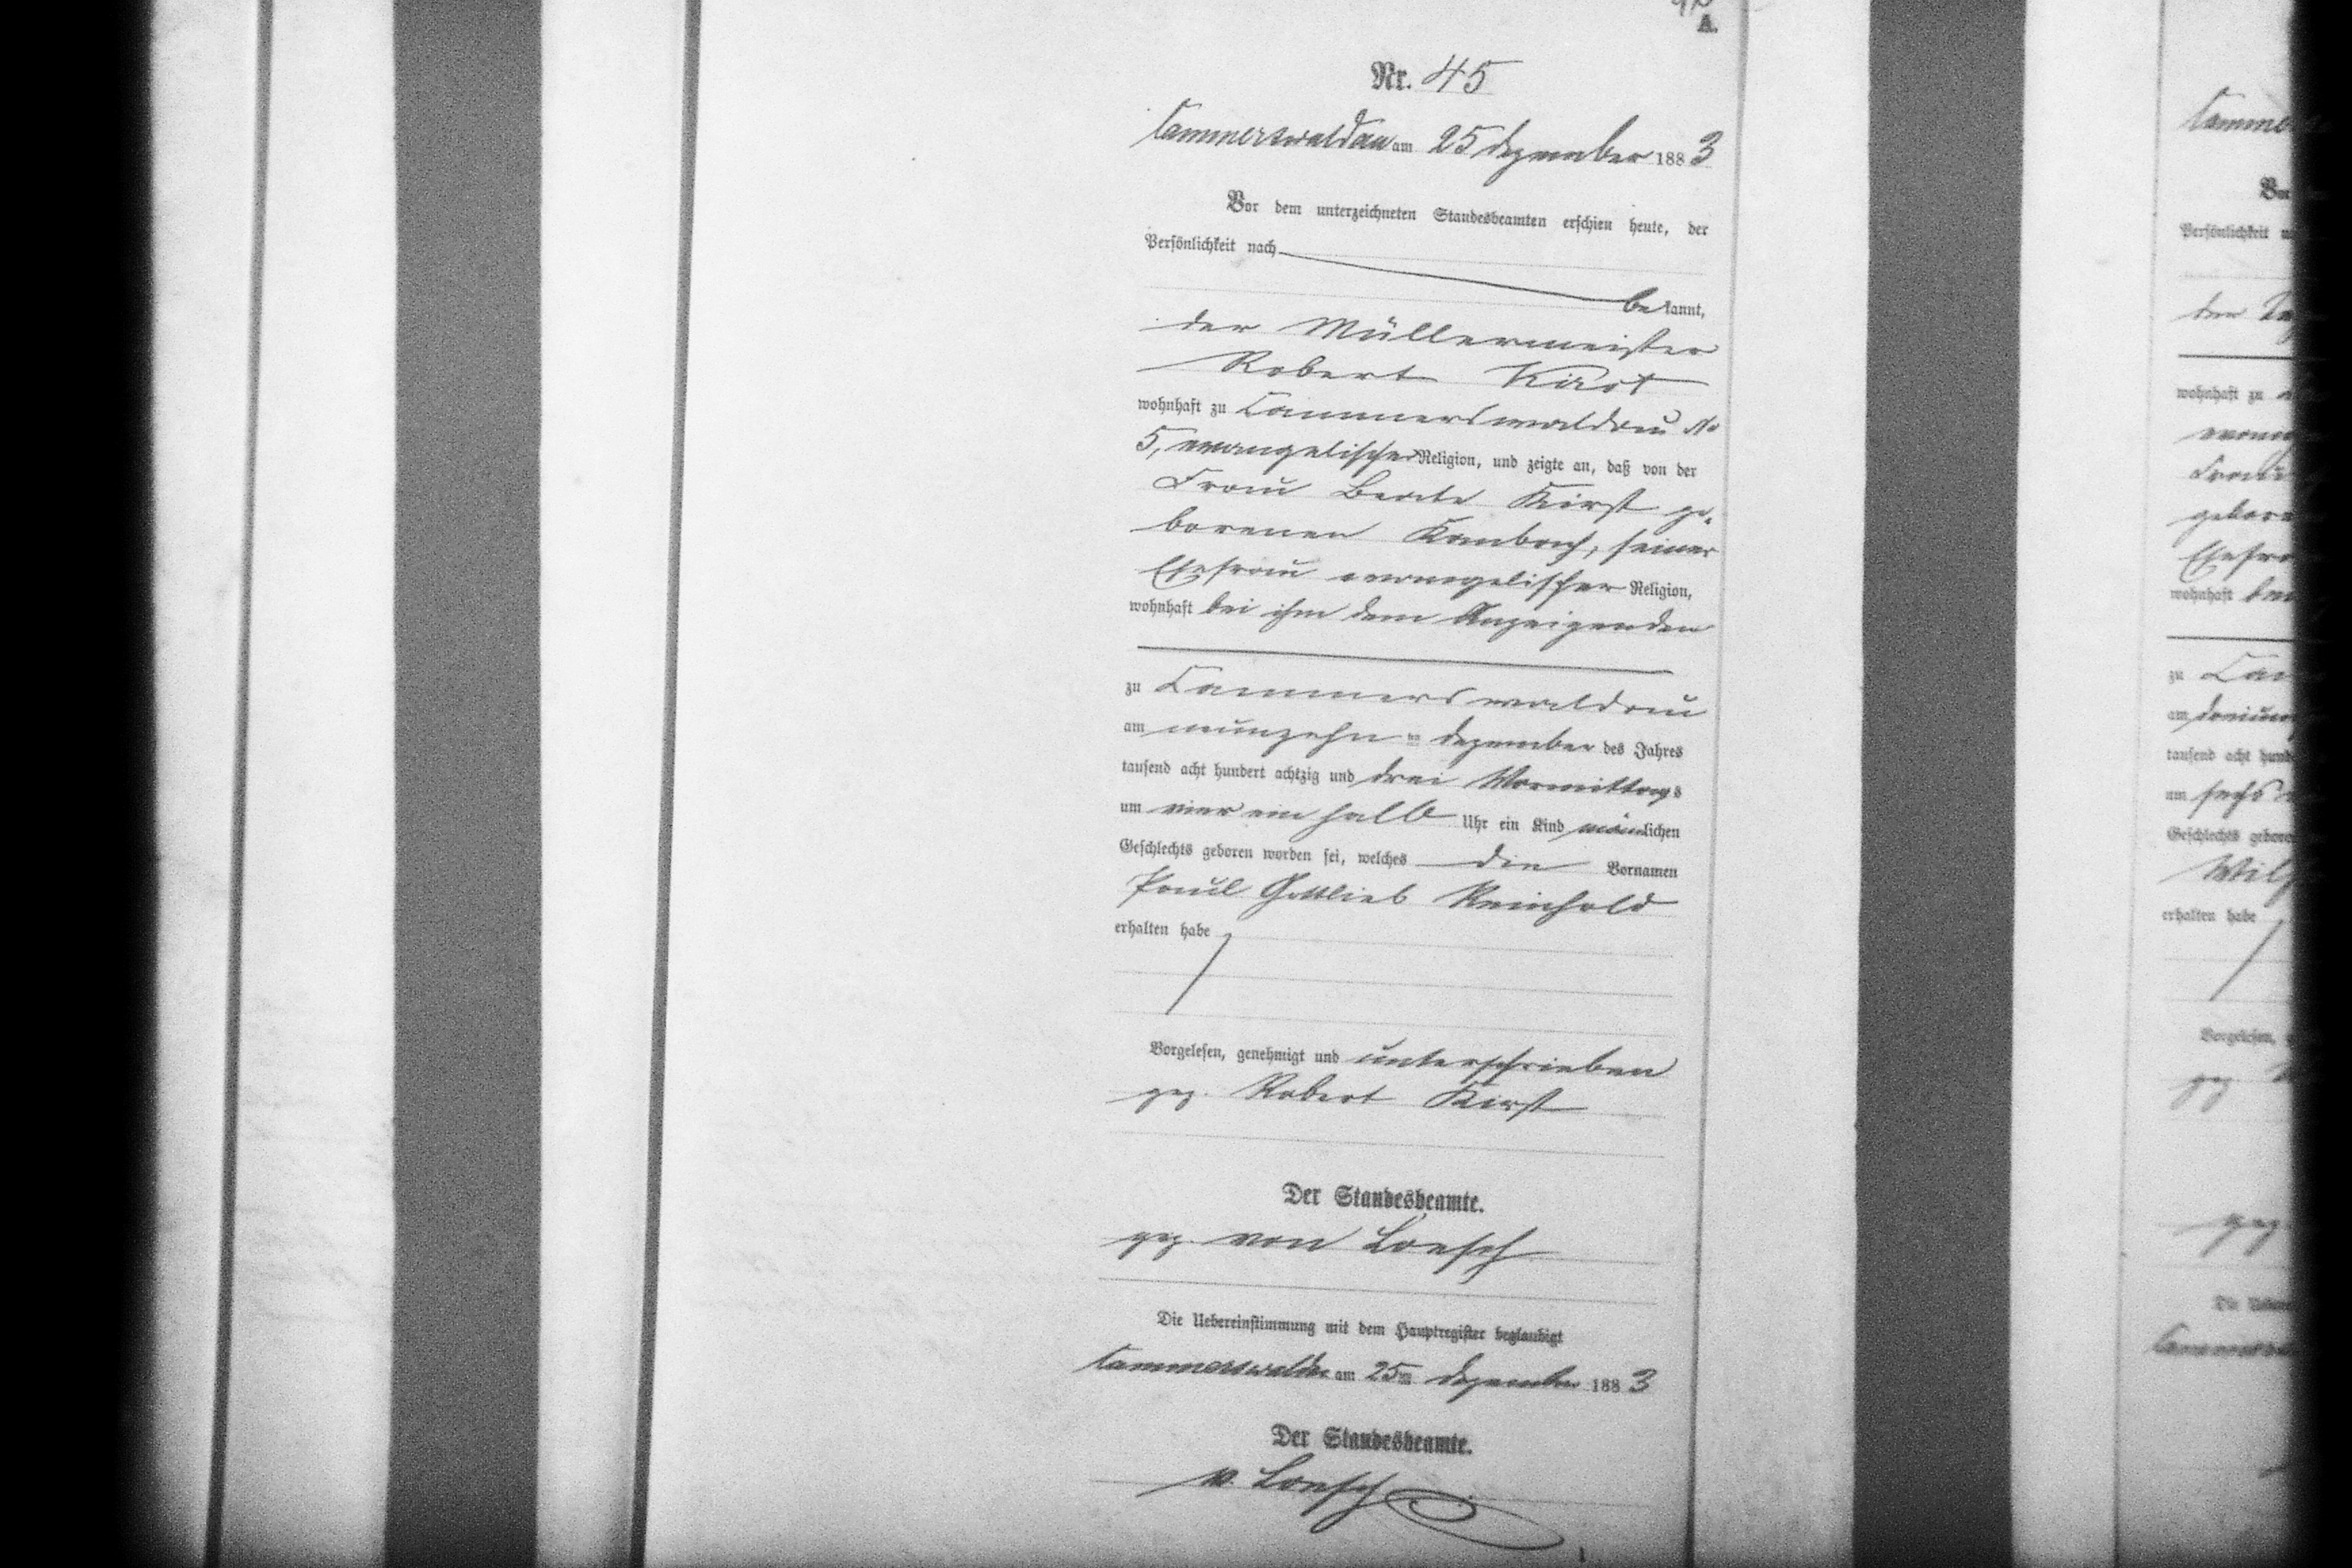 A.
Nr. 45
Cammerswaldau am 25 Dezember 1883
Vor dem unterzeichneten Standesbeamten erschien heute, der
Persönlichkeit nach
bekannt,
der Müllermeister
Robert Kirst
wohnhaft zu Cammerswaldau No
5, evangelischer Religion, und zeigte an, daß von der
Frau Beate Kirst ge-
borenen Kambach, seiner
Ehefrau evangelischer Religion,
wohnhaft bei ihm dem Anzeigenden
zu Cammerswaldau
am neunzehn ten Dezember des Jahres
tausend acht hundert achtzig und drei Vormittags
um vier ein halb Uhr ein Kind männlichen
Geschlechts geboren worden sei, welches die Vornamen
Paul Gottlieb Reinhold
erhalten habe
Vorgelesen, genehmigt und unterschrieben
gez. Robert Kirst
Der Standesbeamte.
gez. von Loesch
Die Uebereinstimmung mit dem Hauptregister beglaubigt
Cammerswaldau am 25ten Dezember 1883
Der Standesbeamte.
v. Loesch
Persönlichkeit
wohnhaft zu
Frau
wohnhaft
zu
am
tausend acht
um sechs
Geschlechts
erhalten habe
Vorgelesen,
gez
gez.
Die